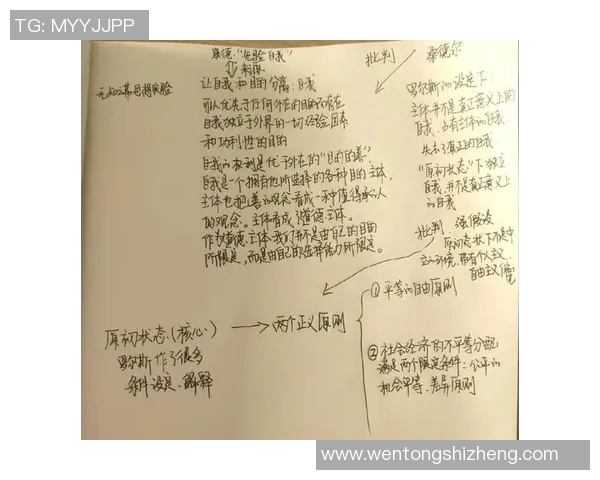 TG: MYYJJPP
康德:"先验自我"
利用
无知之幕思想实验
让自我和目的分离.自我
可以优先于任何外在的目的而存在
自我独立于外界的一切经验因素
和功利性的目的
自我的权利是优于外在的"目的的善"
自我是一个拥有他所选择的各种目的主体,
主体也把善的观念看成一种值得承认
的观念。主体看成道德主体。
作为道德主体我们并不是由自己的目的
所限定,而是由自己的选择能力所限定。
批判
桑德尔
罗尔斯的设定下:
主体并不是真正意义上的
自我,占有主体的自我
失去了真正的自我
"原初状态"下独立
自我,并不是真正意义上
的自我
批判:强假设
原初状态下不是中
立的环境,带有个人主义、
自由主义偏见
原初状态(核心)
罗尔斯作了很多
条件设定、解释
两个正义原则
①平等的自由原则
②社会经济的不平等分配
满足两个限定条件:公平的
机会平等、差异原则
www.wentongshizheng.com